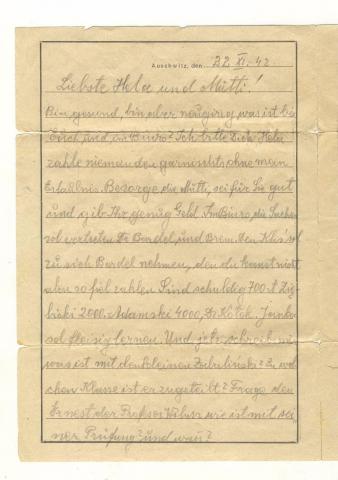 Auschwitz, den 22 XI. 42
Liebste Hela und Mutti!
Bin gesund, bin aber neugirig was ist bei
Euch und im Büro? Ich bitte Dich Hela
zahle niemanden garnichts ohne mein
Erlaubnis. Besorge die Mutti, sei für Sie gut
und gib Ihr genug Geld. Im Büro, die Sachen
sol vertreten Dr Bardel, und Brem den Klis sol
zu sich Bardel nehmen, den du kanst nicht
alen so fiel zahlen. Sind schuldig 700
2000. Adamski 4000, Dr Kotek.
sol fleisig lernen. Und jetz schreibe mir
was ist mit den kleinen Zubulinski? Zu wel
chen Klasse ist er zugeteilt? Frage den
Ernest der Profesor wie ist mit sei
ner Prüfung? und was?